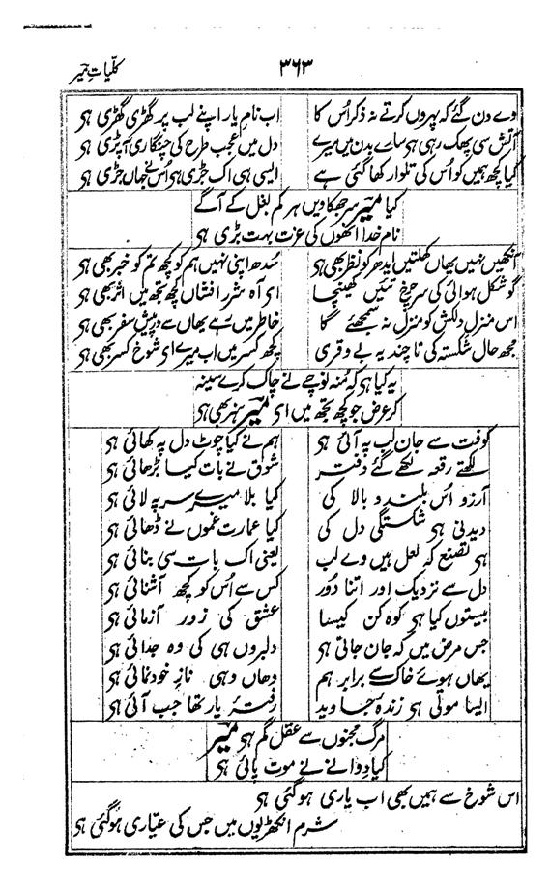 ۳۶۳
کلیاتِ میر
وے دن گئے کہ پہروں کرتے نہ ذکر اُس کا اب نامِ یار اپنے لب پر گھڑی گھڑی ہی
آتش سی پھک رہی ہی سارے بدن میں میرے دل میں عجب طرح کی چنگاری آپڑی ہی
کیا کچھ ہمیں کو اُس کی تلوار کھا گئی ہے ایسی ہی اک جڑی ہی اُس نے جہاں جڑی ہی
کیا میرؔ سر جھکاویں ہر کم بغل کے آگے
نام خدا انھوں کی عزت بہت بڑی ہی
آنکھیں نہیں یھاں کھلتیں ایدھر کو نظر بھی ہی سُدھ اپنی نہیں ہم کو کچھ تم کو خبر بھی ہی
گو شکل ہوائی کی سر چرخ تئیں کھینچا ای آہ شرر افشاں کچھ تجھ میں اثر بھی ہی
اس منزلِ دلکش کو منزل نہ سمجھئے گا خاطر میں رہے یھاں سے درپیش سفر بھی ہی
مجھ حال شکستہ کی تا چند یہ بے وقری کچھ کسر میں اب میرے ای شوخ کسر بھی ہی
یہ کیا ہی کہ مُنہ نوچے نے چاک کرے سینہ
کر عرض جو کچھ تجھ میں ای میرؔ ہنر بھی ہی
کوفت سے جان لب پہ آئی ہی ہم نے کیا چوٹ دل پہ کھائی ہی
لکھتے رقعہ لکھے گئے دفتر شوق نے بات کیا بڑھائی ہی
آرزو اُس بلند و بالا کی کیا بلا میرے سر پہ لائی ہی
دیدنی ہی شکستگی دل کی کیا عمارت غموں نے ڈھائی ہی
ہی تصنع کہ لعل ہیں وے لب یعنی اک بات سی بنائی ہی
دل سے نزدیک اور اتنا دُور کس سے اُس کو کچھ آشنائی ہی
بیستوں کیا ہی کوہ کن کیسا عشق کی زور آزمائی ہی
جس مرض میں کہ جان جاتی ہی دلبروں ہی کی وہ جدائی ہی
یھاں ہوئے خاک سے برابر ہم وھاں وہی نازِ خودنمائی ہی
ایسا موتیٰ ہی زندۂ جاوید رفتۂ یار تھا جب آئی ہی
مرگِ مجنوں سے عقل گم ہی میرؔ
کیا دِوانے نے موت پائی ہی
اس شوخ سے ہمیں بھی اب یاری ہو گئی ہی
شرم انکھڑیوں میں جس کی عیّاری ہو گئی ہی